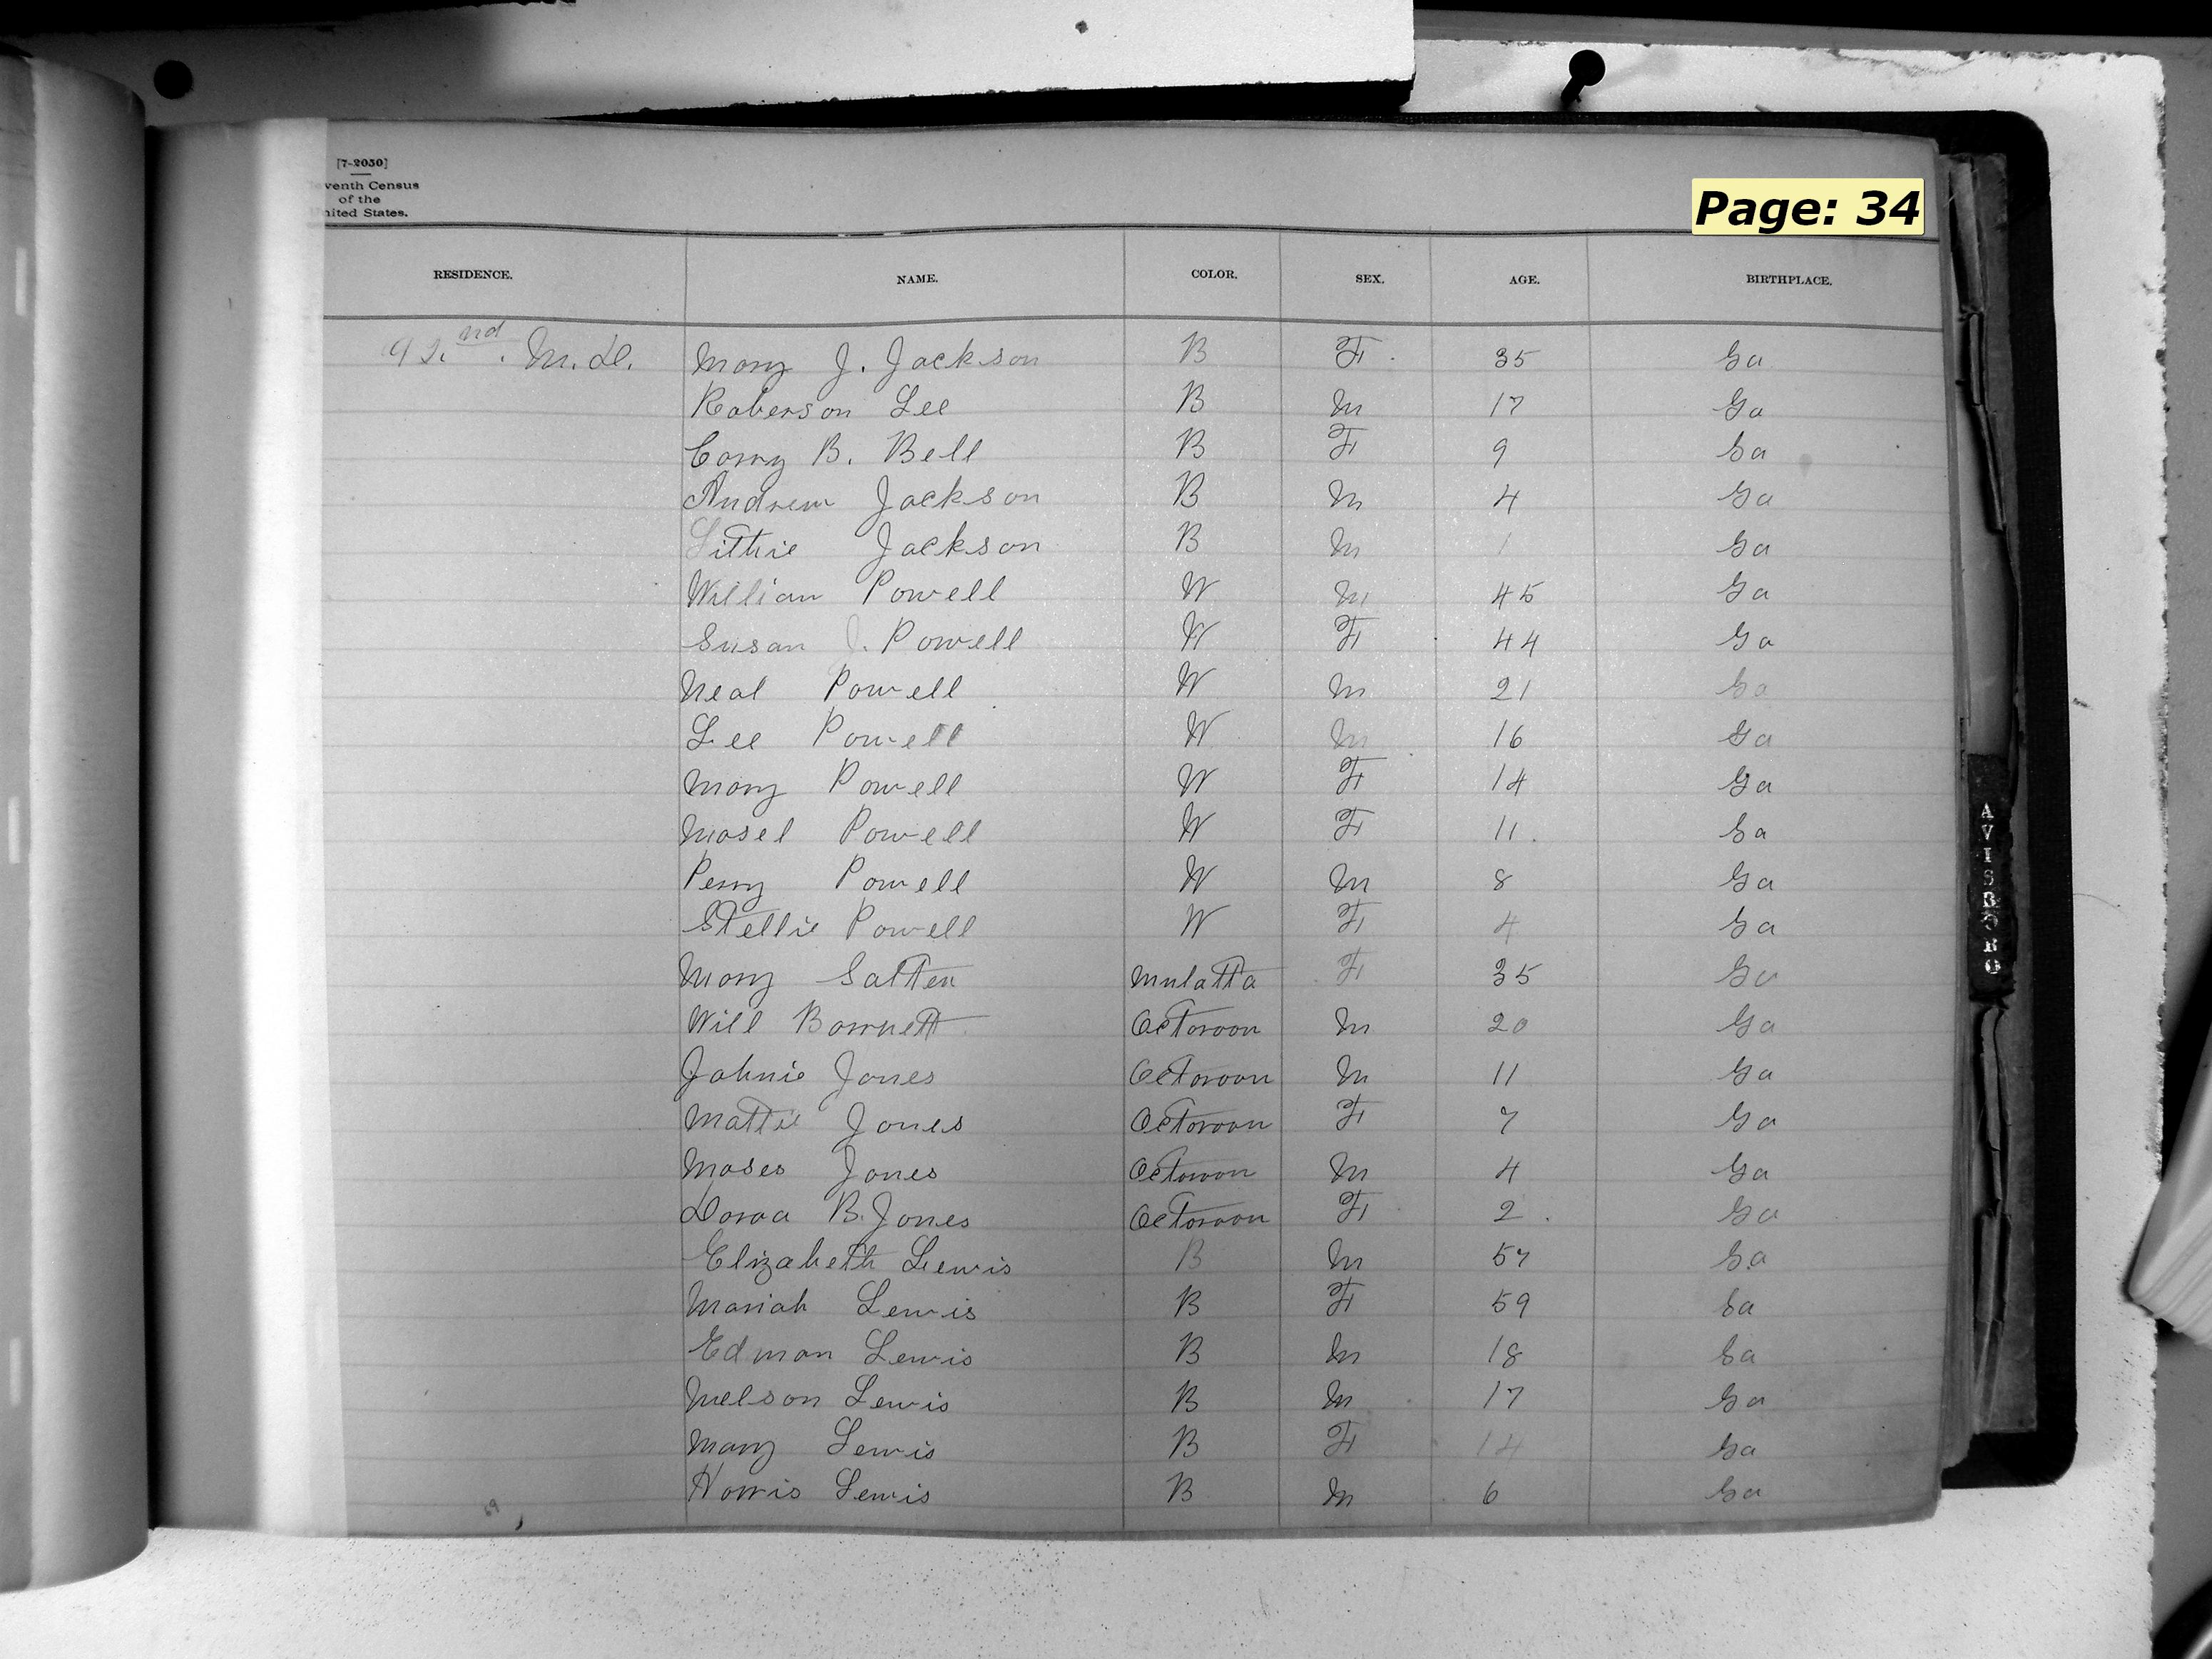 [7-2050]
venth Census
of the
nited States.
Page: 34
RESIDENCE. NAME. COLOR. SEX. AGE. BIRTHPLACE.
92nd. M. D. Mary J. Jackson B F. 35 Ga
Roberson Lee B M 17 Ga
Carry B. Bell B F 9 Ga
Andrew Jackson B M 4 Ga
Jackson B M 1 Ga
William Powell W M 45 Ga
Susan J. Powell W F 44 Ga
Neal Powell W M 21 Ga
Lee Powell W M 16 Ga
Mary Powell W F 14 Ga
Mosel Powell W F 11. Ga
Perry Powell W M 8 Ga
Stellie Powell W F 4 Ga
Mary Mulatta F 35 Ga
Will Barnett Octoroon M 20 Ga
Johnie Jones Octoroon M 11 Ga
Mattie Jones Octoroon F 7 Ga
Moses Jones Octoroon M 4 Ga
Doraa B. Jones Octoroon F 2. Ga
Elizabeth Lewis B M 57 Ga
Mariah Lewis B F 59 Ga
Edman Lewis B M 18 Ga
Nelson Lewis B M 17 Ga
Mary Lewis B F 14 Ga
Harris Lewis B M 6 Ga
AVISBORO